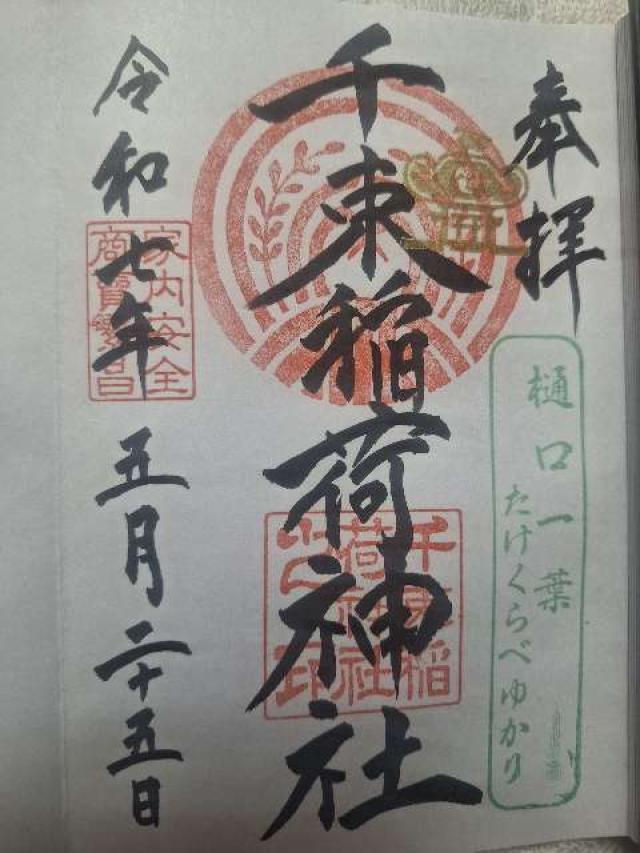 奉拝
樋口一葉
たけくらべゆかり
千束稲荷神社
千束稲
荷神社
之印
令和七年五月二十五日
家内安全
商賣繁昌